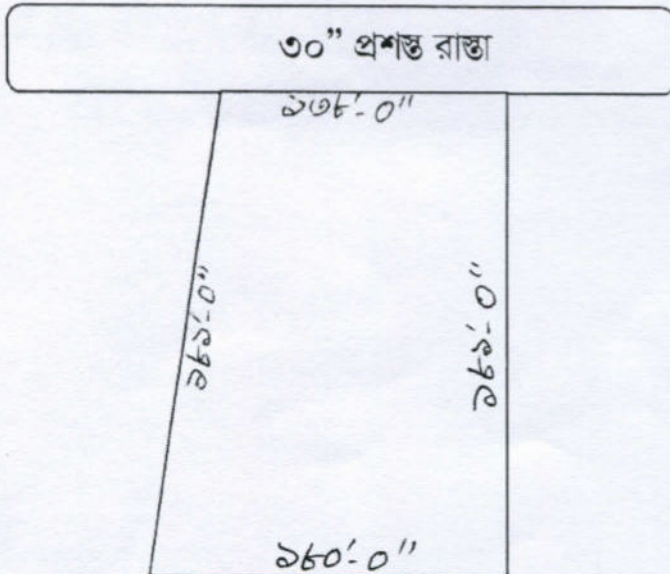 ৩০” প্রশস্ত রাস্তা
১৩৮'-০"
১৮১'-০"
১৮১'-০"
১৮০'-০"